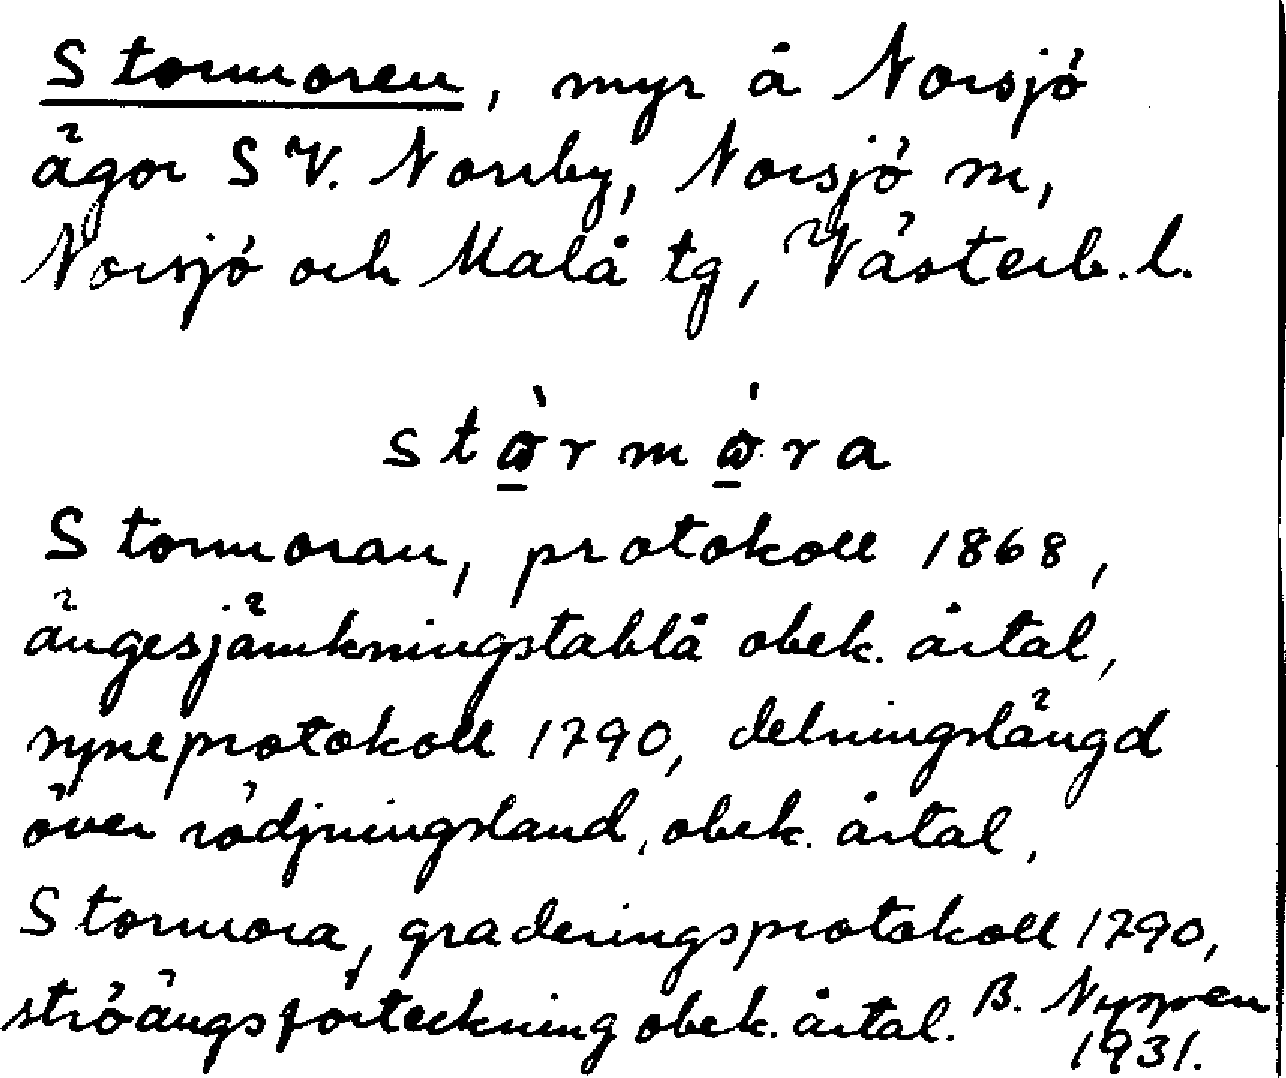 Stormoren, myr å Norsjö
ägor SV. Norrby, Norsjö m,
Norsjö och Malå tg, Västerb. l.
stòrmóra
Stormoran, protokoll 1868,
ängesjämkningstablå obek. årtal,
syneprotokoll 1790, delningslängd
över rödjningsland, obek. årtal,
Stormora, graderingsprotokoll 1790,
ströängsförteckning obek. årtal. B. Nygren
1931.